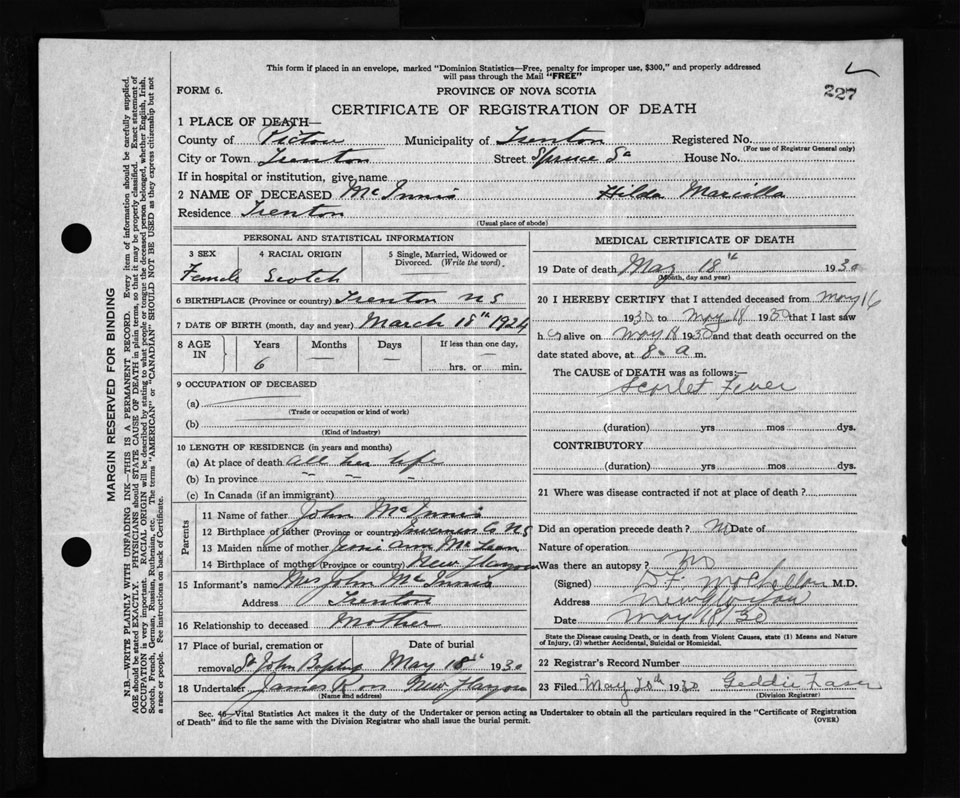 This form if placed in an envelope, marked "Dominion Statistics—Free, penalty for improper use, $300," and properly addressed
will pass through the Mail "FREE"
227
FORM 6.
PROVINCE OF NOVA SCOTIA
CERTIFICATE OF REGISTRATION OF DEATH
1 PLACE OF DEATH—
County of Pictou Municipality of Trenton Registered No.
(For use of Registrar General only)
City or Town Trenton Street Spruce St House No.
If in hospital or institution, give name
2 NAME OF DECEASED McInnis Hilda Marcilla
Residence Trenton
(Usual place of abode)
PERSONAL AND STATISTICAL INFORMATION
3 SEX 4 RACIAL ORIGIN 5 Single, Married, Widowed or
Divorced. (Write the word)
Female Scotch
6 BIRTHPLACE (Province or country) Trenton NS
7 DATE OF BIRTH (month, day and year) March 18th 1924
8 AGE IN Years Months Days If less than one day,
6 — — hrs. or min.
9 OCCUPATION OF DECEASED
(a)
(Trade or occupation or kind of work)
(b)
(Kind of industry)
10 LENGTH OF RESIDENCE (in years and months)
(a) At place of death all her life
(b) In province
(c) In Canada (if an immigrant)
Parents
11 Name of father John McInnis
12 Birthplace of father (Province or country) Inverness Co NS
13 Maiden name of mother Jessie Ann McLean
14 Birthplace of mother (Province or country) New Glasgow
15 Informant's name Mrs John McInnis
Address Trenton
16 Relationship to deceased Mother
17 Place of burial, cremation or Date of burial
removal St John May 18th 1930
18 Undertaker James R New Glasgow
(Name and address)
MEDICAL CERTIFICATE OF DEATH
19 Date of death May 18th 1930
(Month, day and year)
20 I HEREBY CERTIFY that I attended deceased from May 16
1930 to May 18 1930 that I last saw
her alive on May 18 1930 and that death occurred on the
date stated above, at 8 a m.
The CAUSE OF DEATH was as follows:—
Scarlet Fever
(duration) yrs mos dys.
CONTRIBUTORY
(duration) yrs mos dys.
21 Where was disease contracted if not at place of death?
Did an operation precede death? No Date of
Nature of operation
Was there an autopsy? No
(Signed) M.D.
Address New Glasgow
Date May 18/30
State the Disease causing Death, or in death from Violent Causes, state (1) Means and Nature
of Injury, (2) whether Accidental, Suicidal or Homicidal.
22 Registrar's Record Number
23 Filed May 20th 1930 Geddie Fraser
(Division Registrar)
Sec. 46—Vital Statistics Act makes it the duty of the Undertaker or person acting as Undertaker to obtain all the particulars required in the "Certificate of Registration
of Death" and to file the same with the Division Registrar who shall issue the burial permit.
(OVER)
MARGIN RESERVED FOR BINDING
N.B.—WRITE PLAINLY WITH UNFADING INK—THIS IS A PERMANENT RECORD. Every item of information should be carefully supplied.
AGE should be stated EXACTLY. PHYSICIANS should STATE CAUSE OF DEATH in plain terms, so that it may be properly classified. Exact statement of
OCCUPATION is very important. RACIAL ORIGIN will be described by stating to what people or tongue the deceased person belonged, whether English, Irish,
Scotch, French, German, Russian, Ruthenian, etc. The terms "AMERICAN" or "CANADIAN" SHOULD NOT BE USED as they express citizenship but not
a race or people. See instructions on back of Certificate.